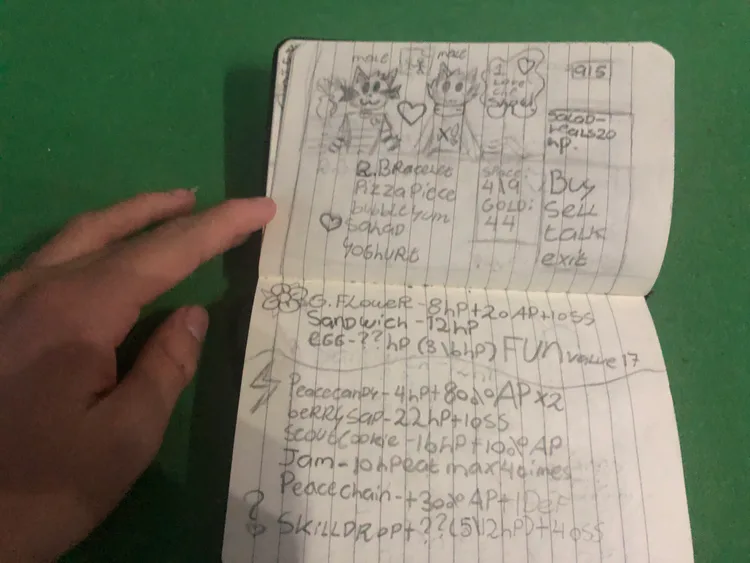 male
male
I
Love
the
915
SALAD-
heals 20
hp.
R. Bracelet
Pizza Piece
Bubblegum
Salad
Yoghurt
SPACE:
4\9
GOLD:
44
Buy
Sell
talk
exit
G. Flower - 8hp + 20AP + 10SS
Sandwich - 12hp
EGG - ??hp (3\6hp) FUN value 17
Peacecandy - 4hp + 80\0 AP x2
beRRy Sap - 22hp + 10SS
Scout Cookie - 16hp + 10\0 AP
Jam - 10hp eat max 4 times
Peacechain - + 30\0 AP + 1 DEF
? SKILLDROP + ?? (5\12hp) + 40SS